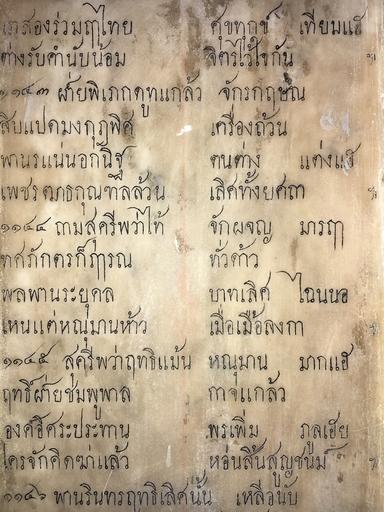 เกสองร่วมฤๅไทย ศุขทุกข์ เทียมแฮ
ต่างรับคำนับน้อม จิตรไว้ใจกัน
๑๑๔๓ ฝ่ายพิเภกดูทูแกล้ว จักรกฤษณ
สิบแปดมงกุฎพิศ เครื่องถ้วน
พานรแน่นอกนิฐ ตนต่าง แต่งแฮ
เพชรฒาธกุณฑลล้วน เลิศทั้งยศถา
๑๑๔๔ ถามสุครีพว่าไท้ จักผจญ มารฤๅ
ทศภักตรก็ฦๅรณ ทั่วด้าว
พลพานระยุคล บาทเลิศ ไฉนนอ
เหนแต่หณุมานห้าว เมื่อเมื้อลงกา
๑๑๔๕ สุครีพว่าฤทธิแม้น หณุมาน มากแฮ
ฤทธิ์ฝ่ายชุมพูพาล กาจแกล้ว
องค์อิศระประทาน พรเพิ่ม ภูลเฮย
ใครจักคิดฆ่าแล้ว ห่อนสิ้นสูญชนม์
๑๑๔๖ พานรินทรฤทธิเลิศนั้น เหลือนับ